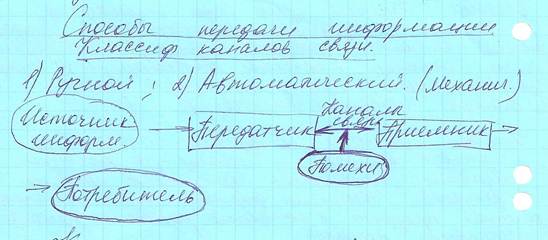 Способы передачи информации
Классиф каналов связи.
1) Ручной ; 2) Автоматический. (Механич.)
Источник
информ.
Передатчик
Каналы
связи
Приемник
Помехи
Потребитель